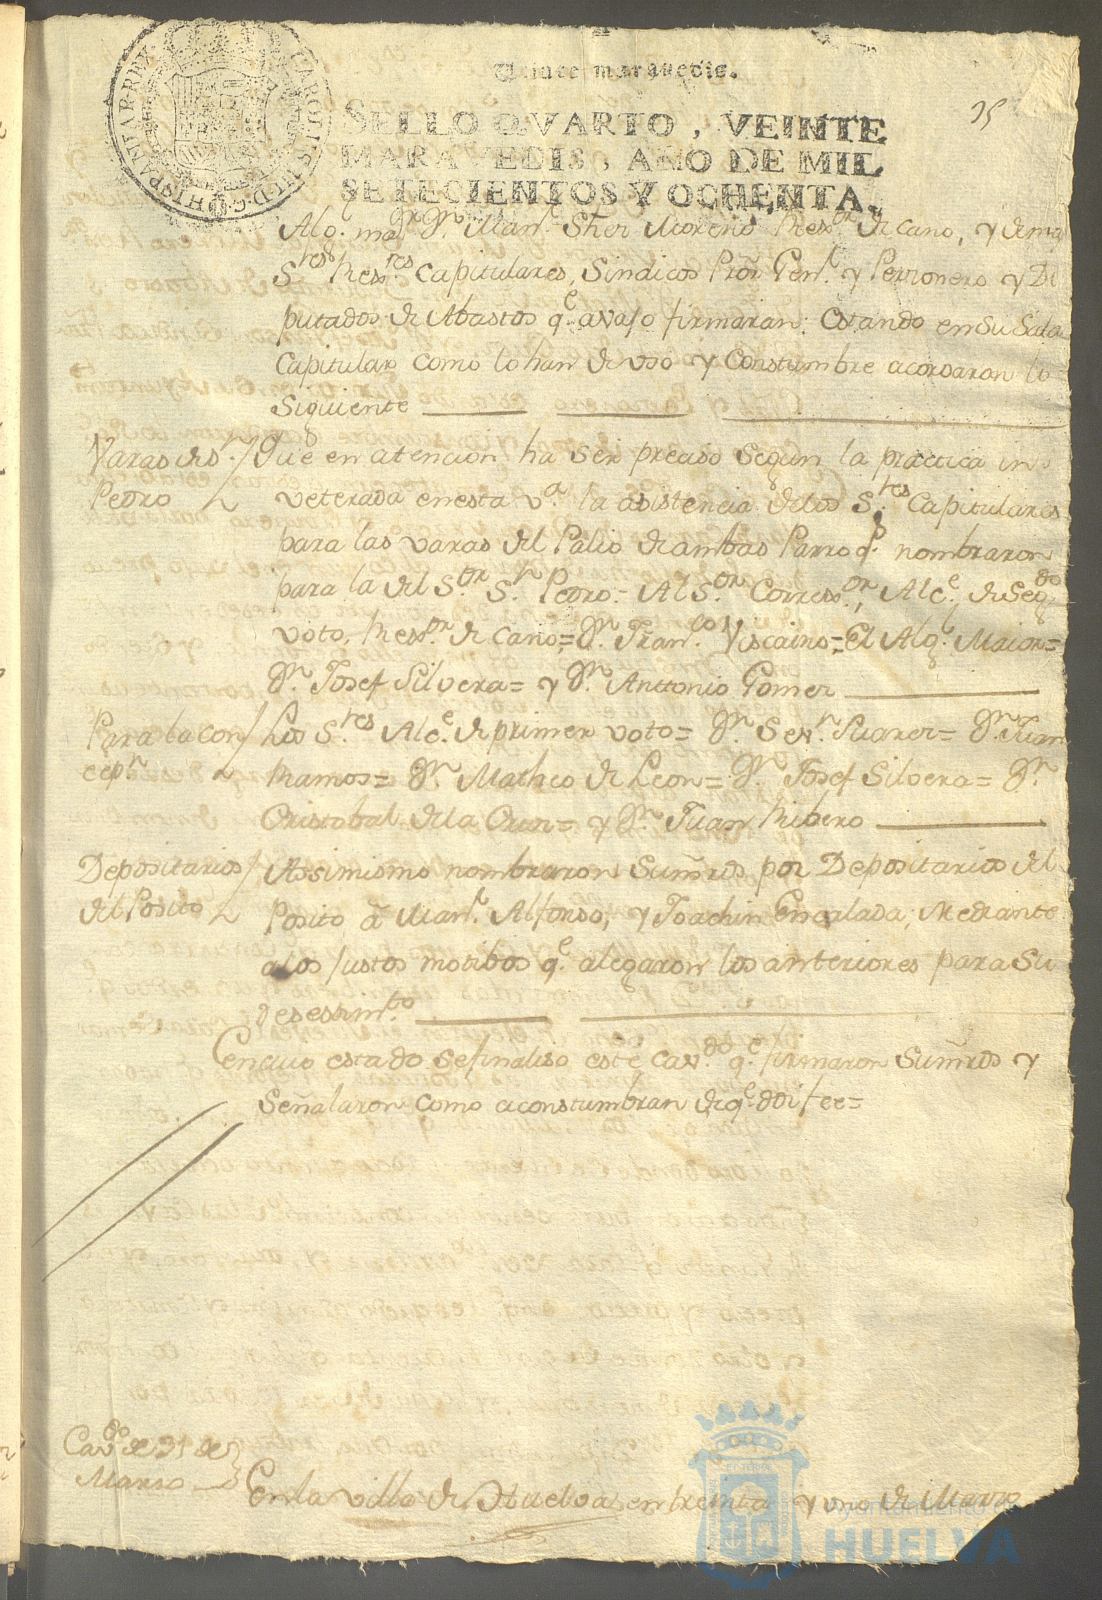 CAROLUS III D G HISPANIAR REX
Veinte maravedis.
35
SELLO QVARTO, VEINTE
MARAVEDIS, AÑO DE MIL
SETECIENTOS Y OCHENTA.
Alg. maor Dn. Manl. Shez Moreno Rexor. de cano, y dema
Sres Resres Capitulares, Sindicos Pror Genl. y Personero y Di
putados de Abastos qe. avajo firmaran: estando en su Sala
Capitular como lo han de uso y Constumbre acordaron lo
Siguiente
Varas de Sn. Pedro
Que en atencion ha ser preciso segun la practica in
veterada en esta va. la asistencia de los Sres. Capitulares
para las varas del Palio de ambas Parroqs. nombraron
para la del Sor. Sn. Pedro = Al Sor. Corresor., Alce. de Segdo
voto, Resor. de cano = Dn. Franco. Viscaino = El Alg. Maior =
Dn. Josef Silvera = y Dn. Anttonio Gomez
Para la con
cepn.
Los Sres. Alce. de primer voto = Dn. Sevn. Suarez = Dn. Juan
Ramos = Dn. Matheo de Leon = Dn. Josef Silvera = Dn.
Cristobal de la Cruz = y Dn. Juan Ribero
Depositarios
del Posito
Assimismo nombraron Sumrds por Depositarios del
Posito á Manl. Alfonso, y Joachin Encalada, Mediante
a los justos motibos qe. alegaron los anteriores para su
desestimto.
En cuio estado se finaliso este Cavdo. qe. firmaron Sumrds y
Señalaron como aconstumbran de qe. doi fee =
Cavdo. de 31 de
Marzo
En la villa de Huelva en treinta y uno de Marzo
Ayuntamiento de
HUELVA